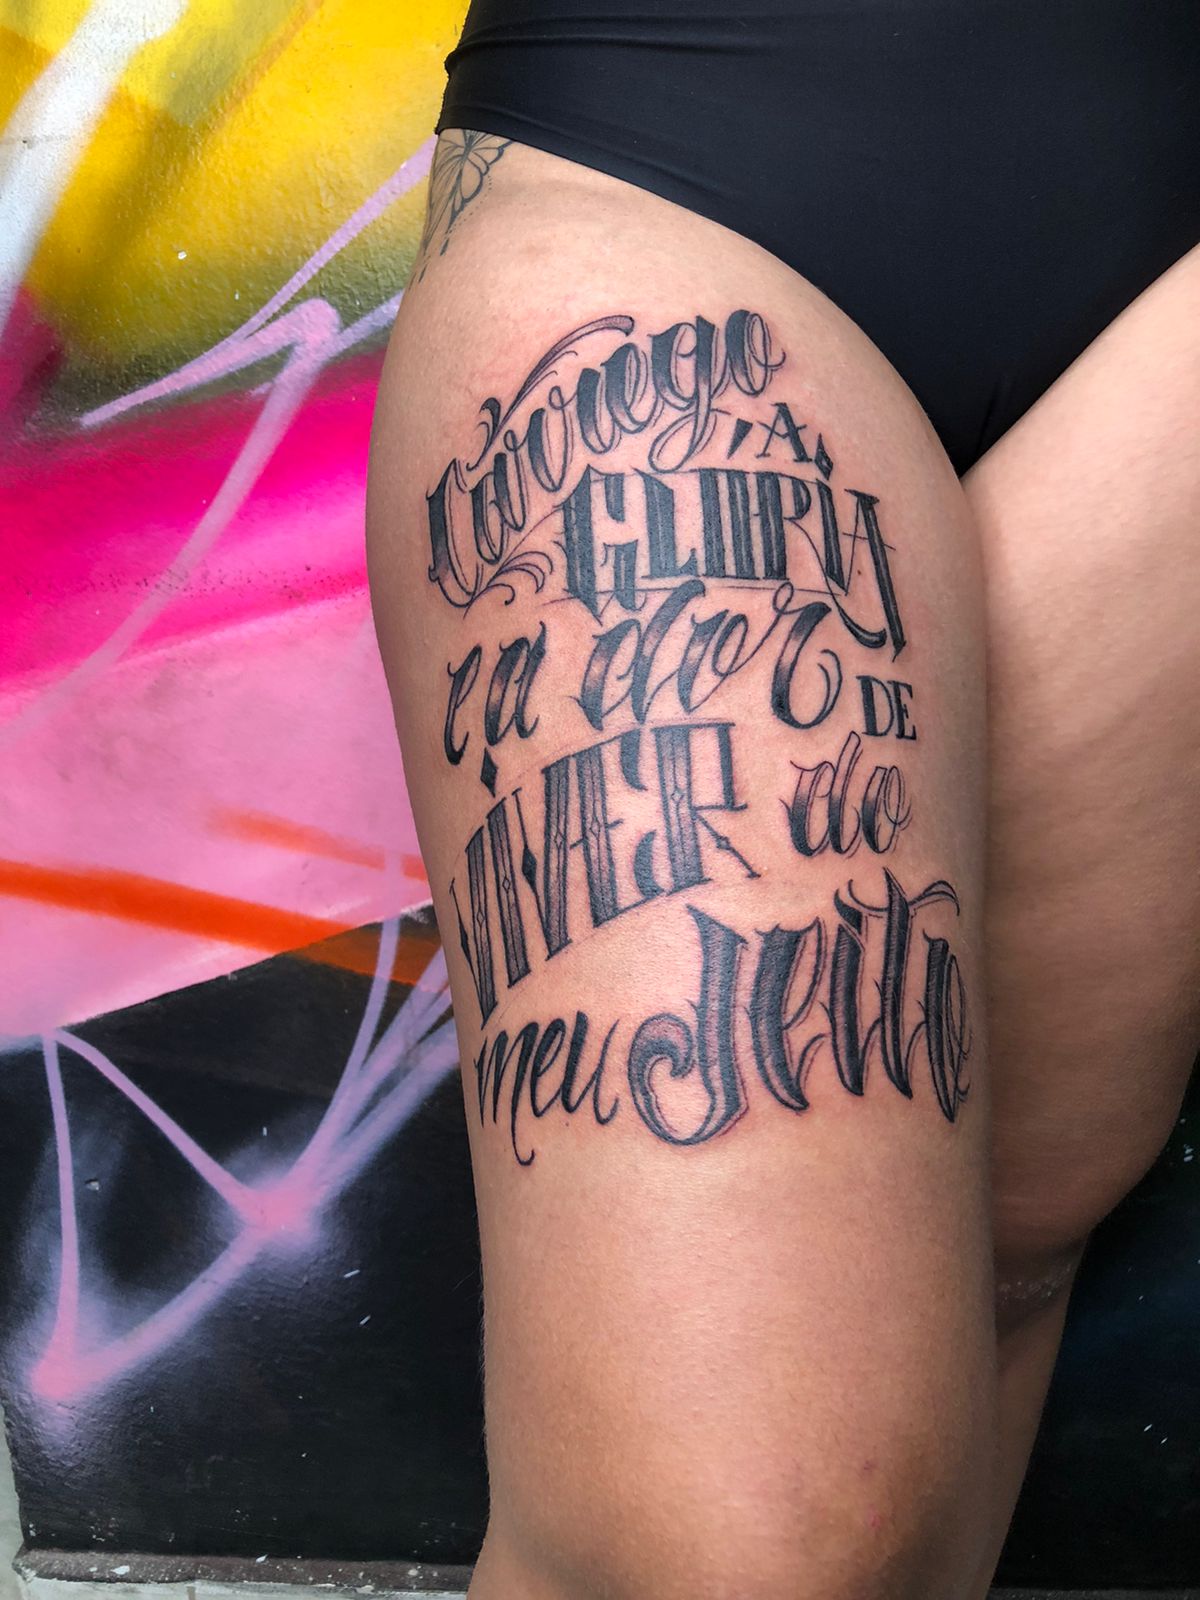 Carrego
A
GLORIA
e a dor DE
VIVER do
meu Jeito